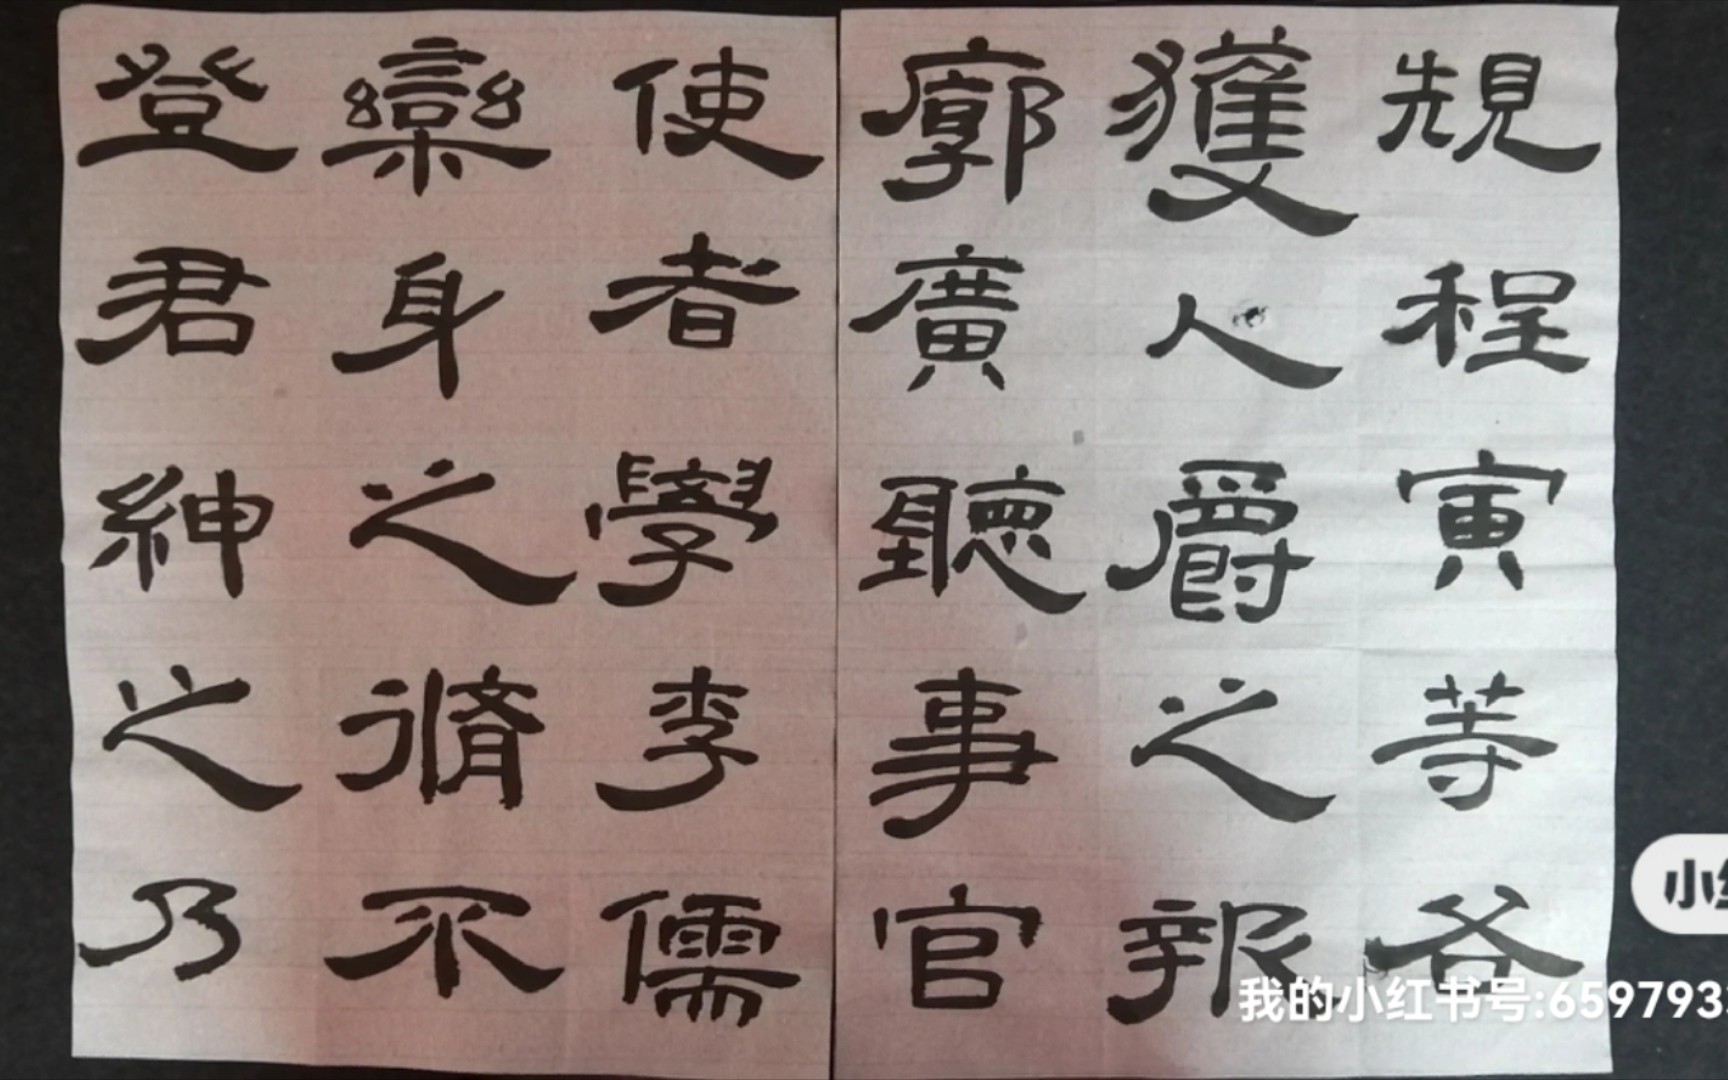 規程寅等各
獲人爵之報
廓廣聽事官
使者學李儒
欒身之脩不
登君紳之乃
小红
我的小红书号:6597933